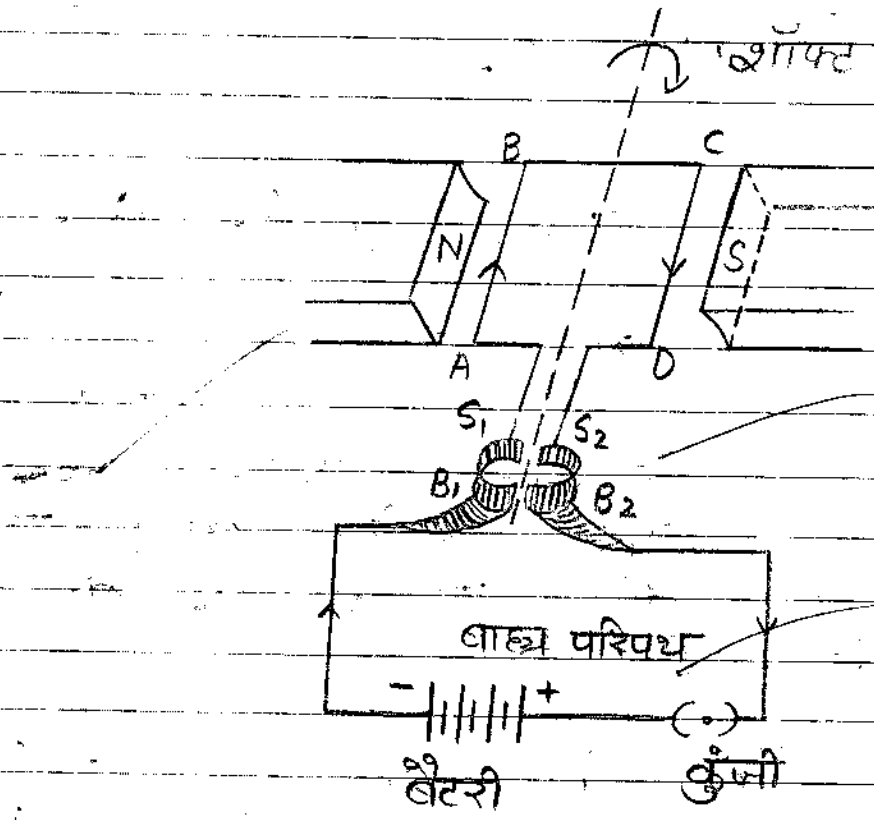 शॉफ्ट
B C
N S
A D
S₁ S₂
B₁ B₂
बाह्य परिपथ
- +
बैटरी कुंजी